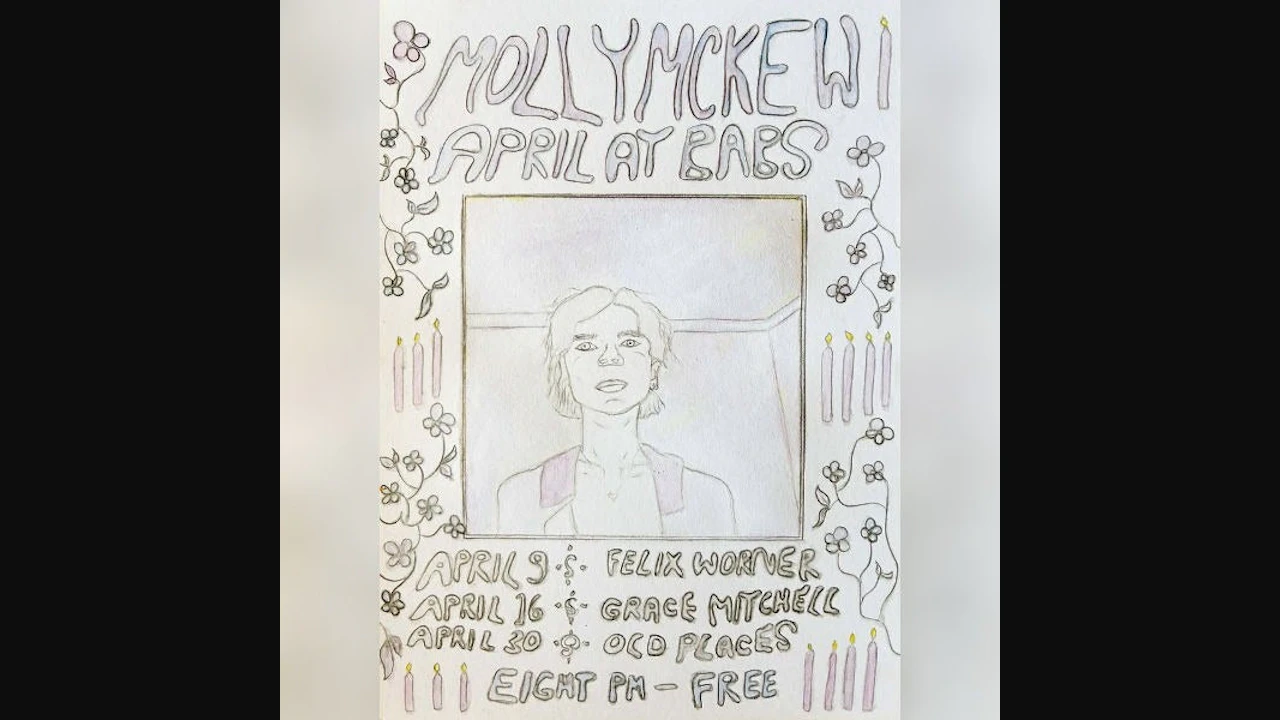 MOLLY MCKEW
APRIL AT BABS
APRIL 9 FELIX WORNER
APRIL 16 GRACE MITCHELL
APRIL 30 OLD PLACES
EIGHT PM - FREE